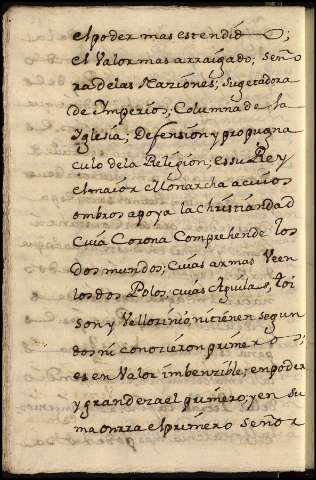 el poder mas estendido;
el Valor mas arraigado; Seño
ra de las Naziones; Sugetadora
de Imperios, Columna de la
Yglesia; Defension y propugna
culo de la Religion; es su Rey
el maior Monarcha a cuios
ombros apoya la Christiandad
Cuia Corona Comprehende los
Dos mundos; Cuias armas Veen
los dos Polos, cuias Aguilas, toi
son y Vellozino, ni tienen segun
dos ni conozieron primero;
es en Valor imbenzible; en poder
y grandeza el primero; y en su
ma onrra el primero Señor